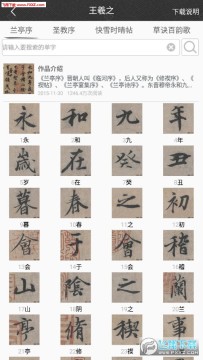 王羲之
下载说明
兰亭序 圣教序 快雪时晴帖 草诀百韵歌
请输入要搜索的单字
作品介绍
《兰亭序》晋朝人叫《临河序》，后人又称为《修禊序》、《禊帖》、《兰亭宴集序》、《兰亭诗序》。东晋穆帝永和九...
永 和 九 年
1永 2和 3九 4年
歲 在 癸 丑
5岁 6在 7癸 8丑
暮 春 之 初
9暮 10春 11之 12初
會 于 會 稽
13会 14于 15会 16稽
山 陰 之 蘭
17山 18阴 19之 20兰
亭 脩 禊 事